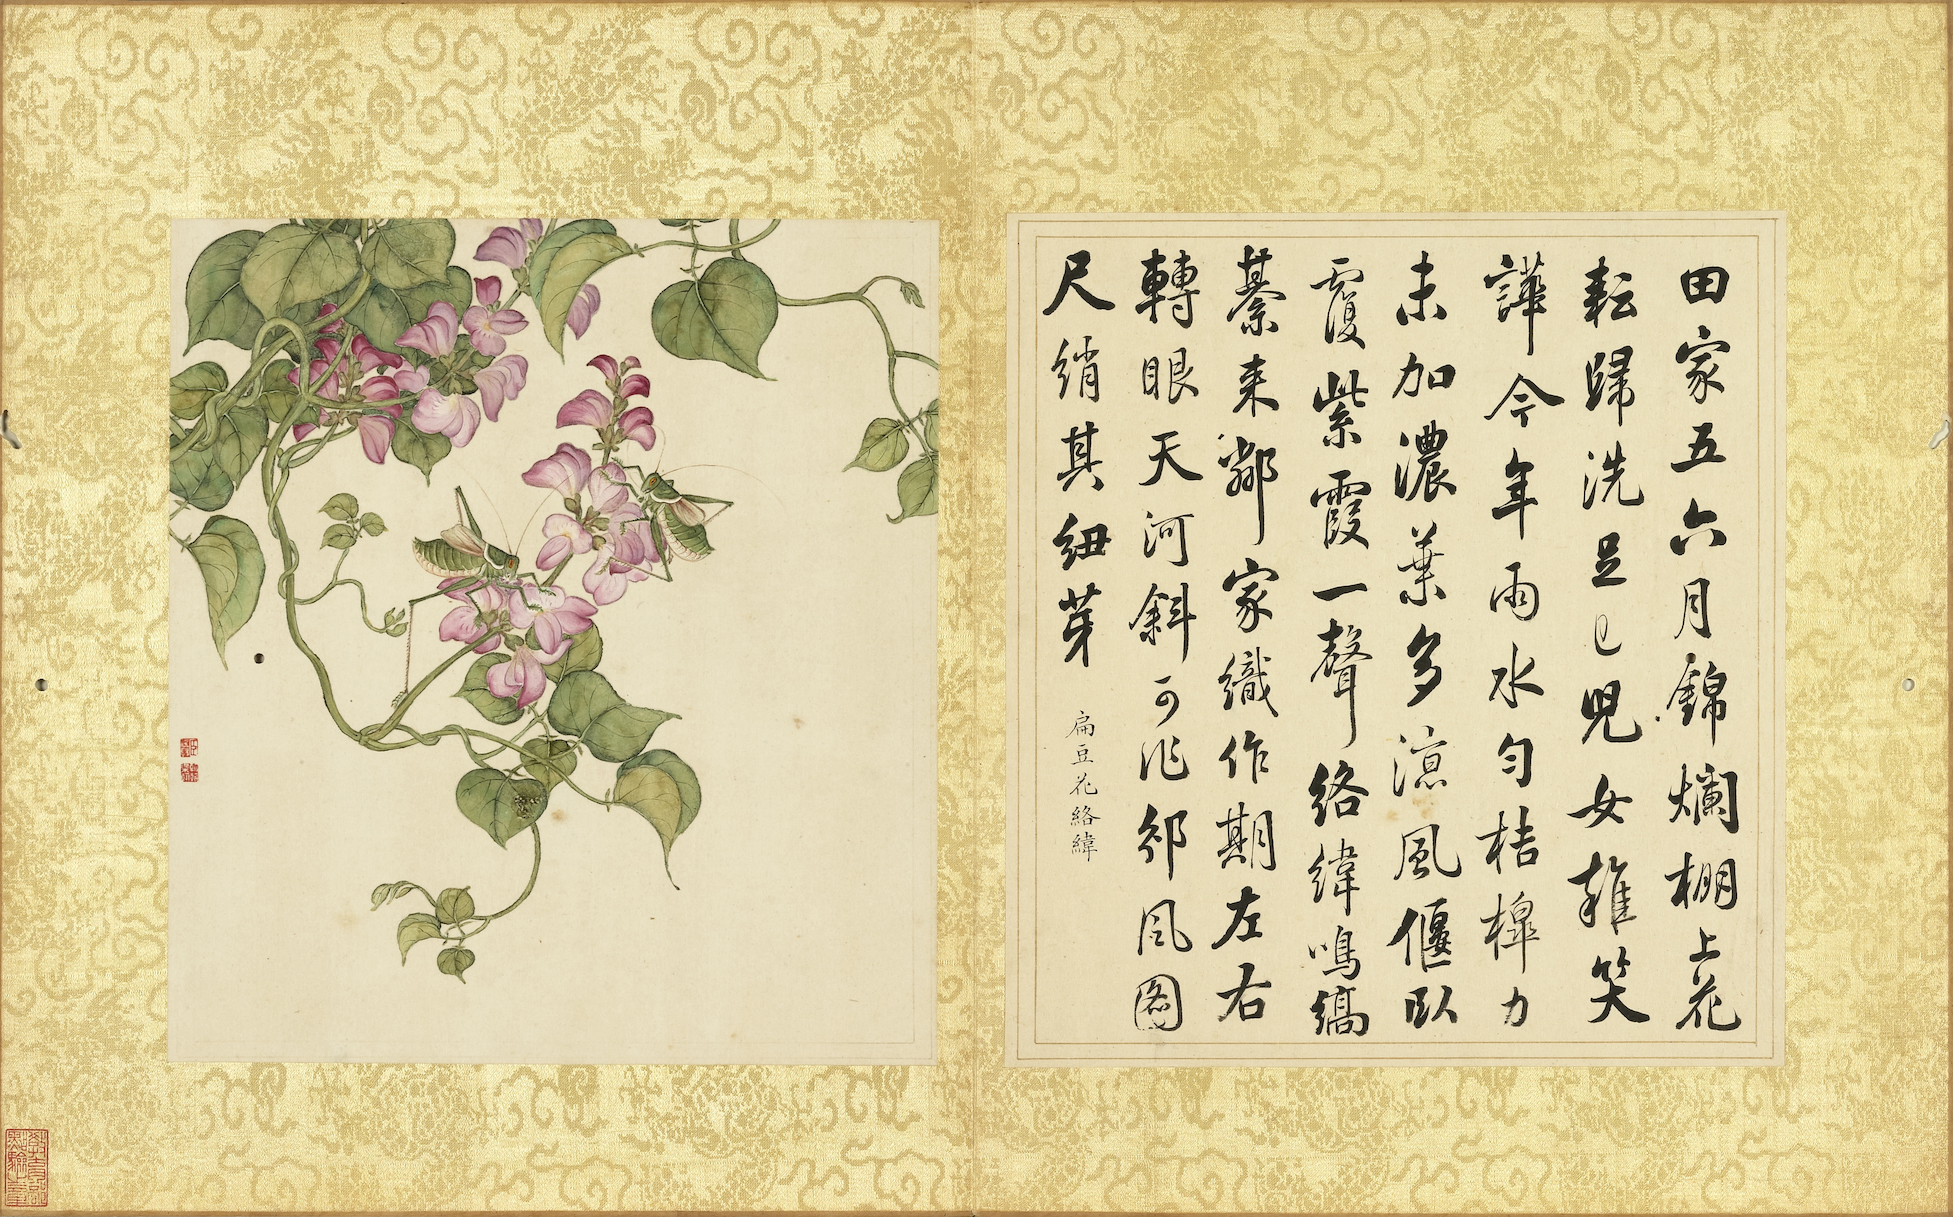 田家五六月錦爛棚上花
耘歸洗足已兒女雜笑
譁今年雨水勻桔槔力
未加濃葉多涼風偃臥
覆紫霞一聲絡緯鳴縞
綦来鄰家織作期左右
轉眼天河斜可作邠風圖
尺綃其紐芽
扁豆花絡緯
教育部
點驗之章